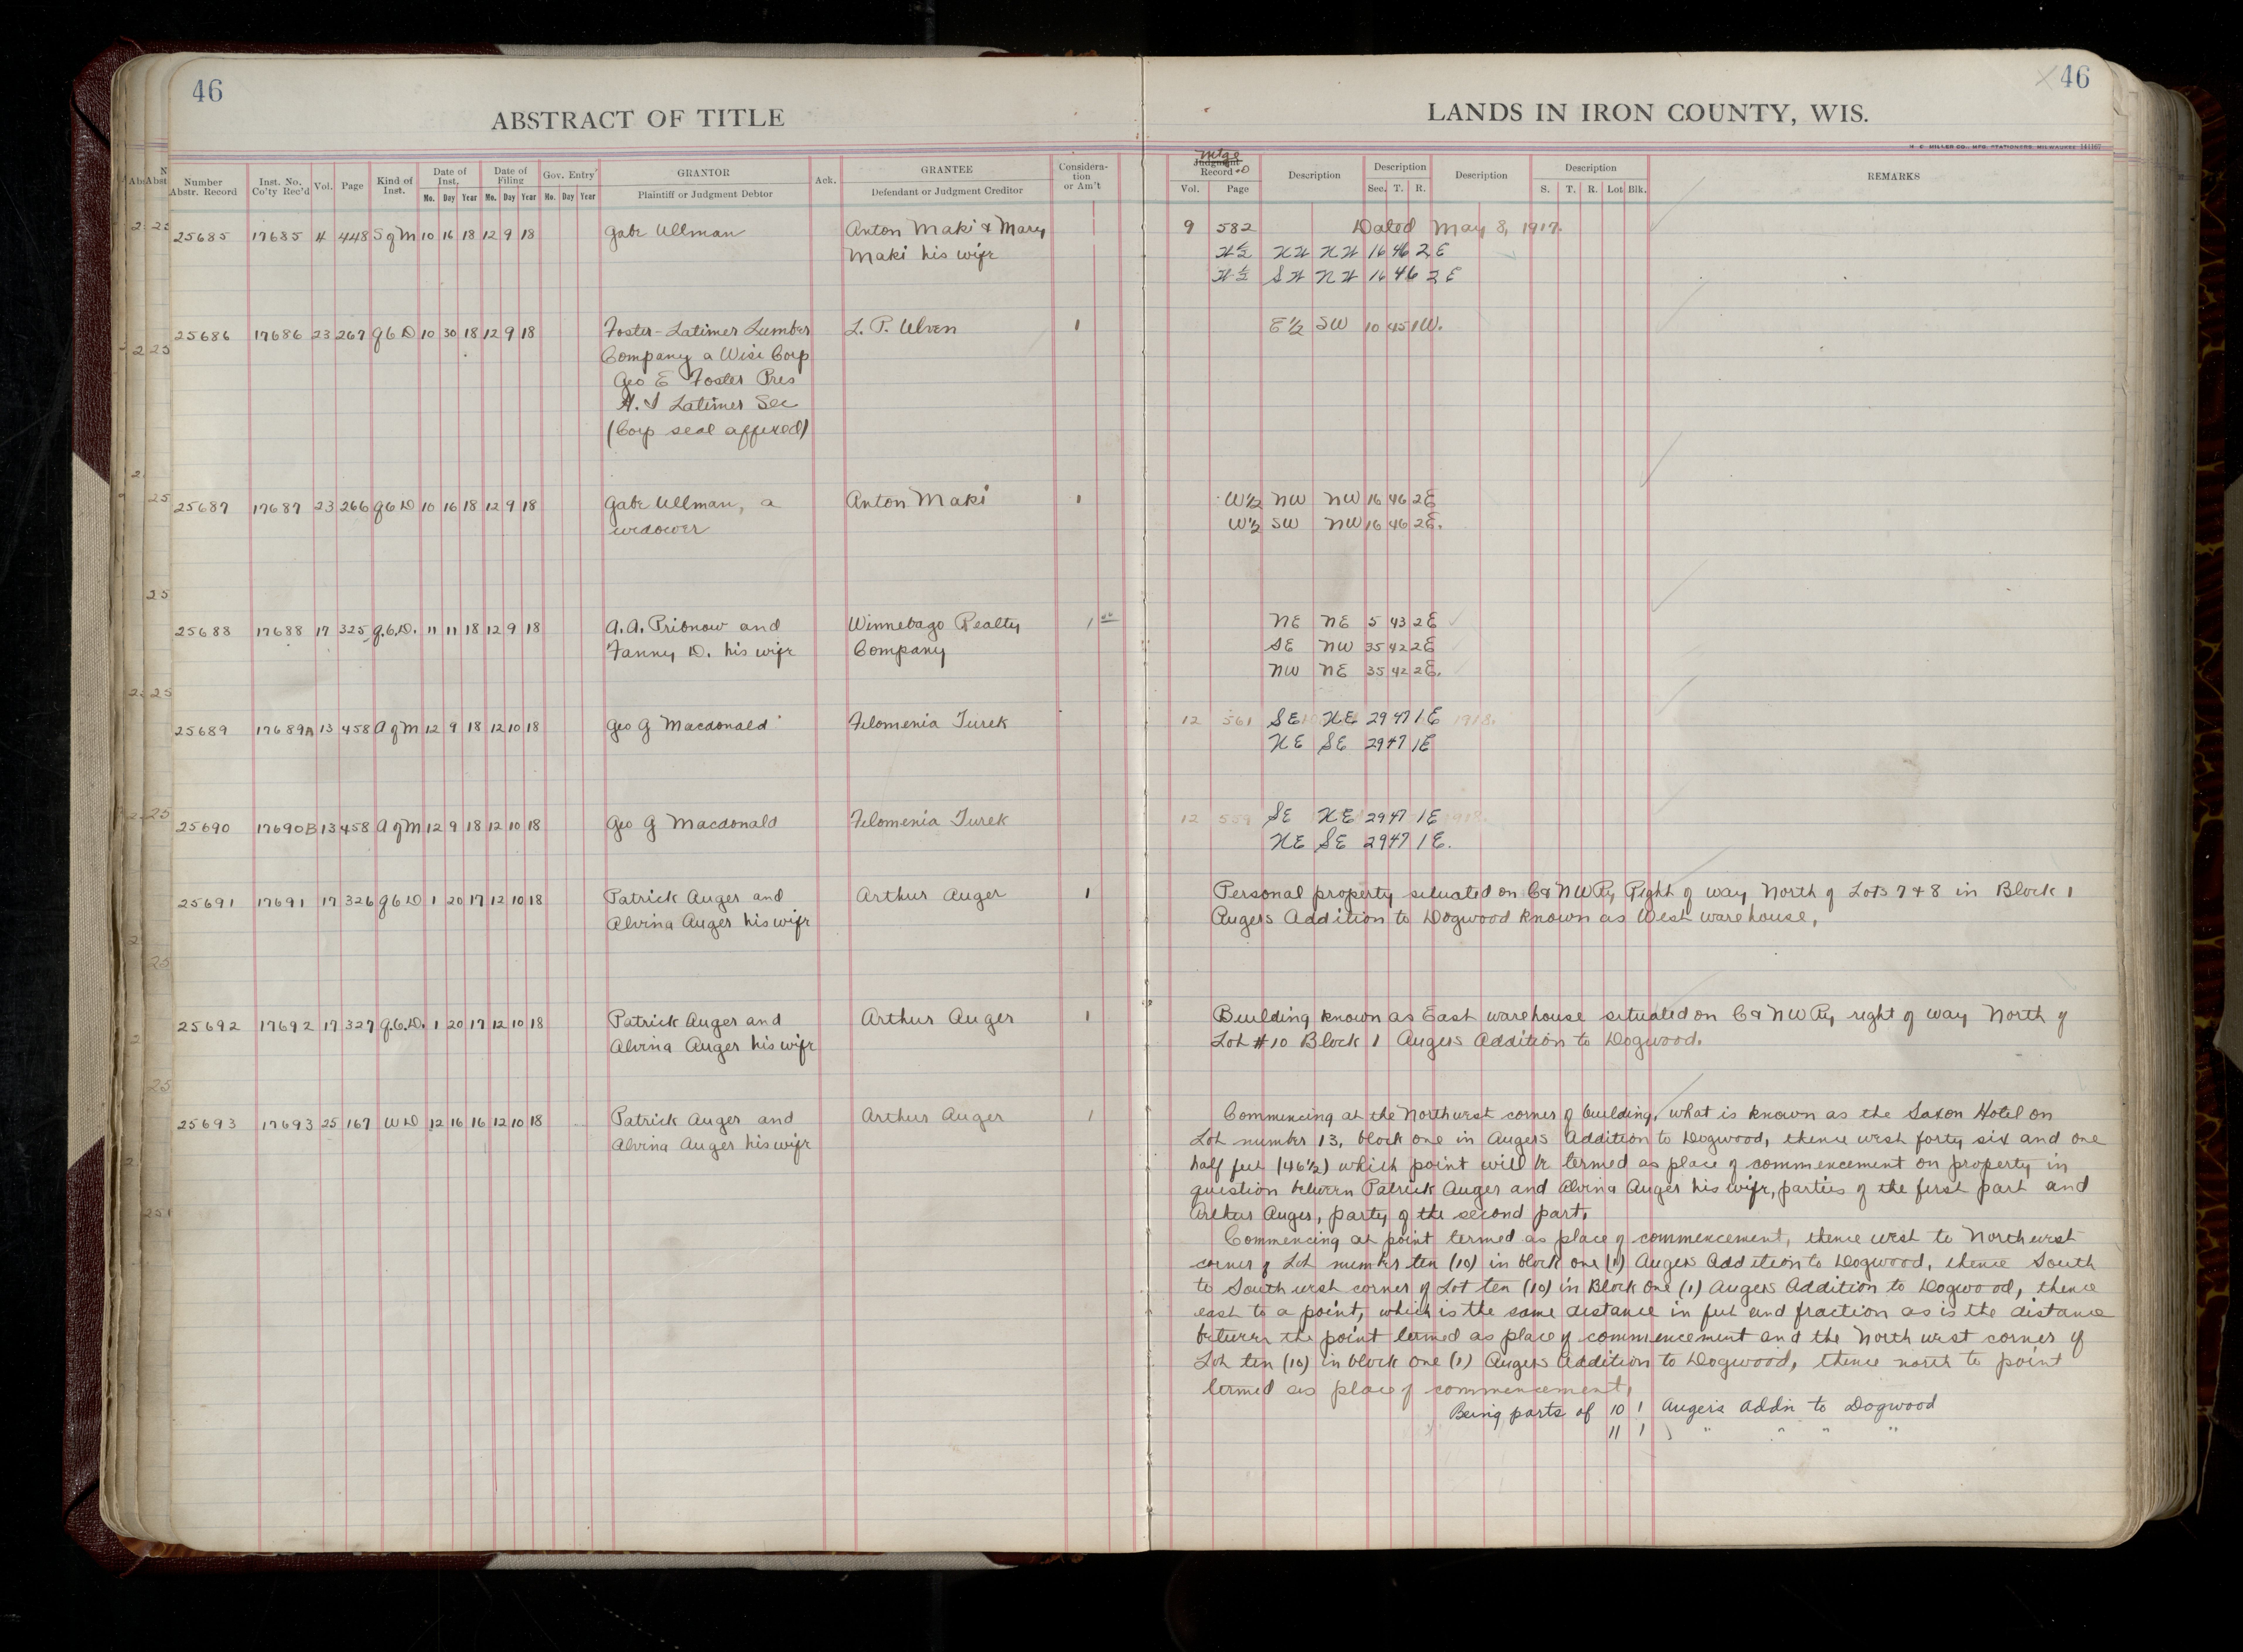 46
ABSTRACT OF TITLE
Number Abstr. Record | Inst. No. Co'ty Rec'd | Vol. | Page | Kind of Inst. | Date of Inst. Mo. Day Year | Date of Filing Mo. Day Year | Gov. Entry Mo. Day Year | GRANTOR Plaintiff or Judgment Debtor | Ack. | GRANTEE Defendant or Judgment Creditor | Consideration or Am't
25685 17685 4 448 S of M 10 16 18 12 9 18 Gabe Ullman Anton Maki & Mary
Maki his wife
25686 17686 23 267 QCD 10 30 18 12 9 18 Foster-Latimer Lumber L. P. Ulven 1
Company a Wisc Corp
Geo E Foster Pres
H. S Latimer Sec
(Corp seal affixed)
25687 17687 23 266 QCD 10 16 18 12 9 18 Gabe Ullman, a Anton Maki 1
widower
25688 17688 17 325 Q.C.D. 11 11 18 12 9 18 A. A. Pribnow and Winnebago Realty 1
Fanny D. his wife Company
25689 17689A 13 458 A of M 12 9 18 12 10 18 Geo G Macdonald Filomenia Turek
25690 17690B 13 458 A of M 12 9 18 12 10 18 Geo G Macdonald Filomenia Turek
25691 17691 17 326 QCD 1 20 17 12 10 18 Patrick Auger and Arthur Auger 1
Alvina Auger his wife
25692 17692 17 327 Q.C.D. 1 20 17 12 10 18 Patrick Auger and Arthur Auger 1
Alvina Auger his wife
25693 17693 25 167 WD 12 16 16 12 10 18 Patrick Auger and Arthur Auger 1
Alvina Auger his wife
46
LANDS IN IRON COUNTY, WIS.
H. C. MILLER CO., MFG. STATIONERS, MILWAUKEE
Mtge
Judgment Record Vol. Page | Description | Description Sec. T. R. | Description | Description S. T. R. Lot Blk. | REMARKS
9 582 Dated May 8, 1917.
W½ NW NW 16 46 2E
W½ SW NW 16 46 2E
E½ SW 10 45 1W.
W½ NW NW 16 46 2E
W½ SW NW 16 46 2E.
NE NE 5 43 2E
SE NW 35 42 2E
NW NE 35 42 2E.
12 561 SE NE 29 47 1E 1918.
NE SE 29 47 1E
12 559 SE NE 29 47 1E 1918.
NE SE 29 47 1E.
Personal property situated on C & NW Ry Right of way North of Lots 7 & 8 in Block 1
Augers Addition to Dogwood known as West warehouse,
Building known as East warehouse situated on C & NW Ry right of way North of
Lot #10 Block 1 Augers Addition to Dogwood.
Commencing at the Northwest corner of building, what is known as the Saxon Hotel on
Lot number 13, block one in Augers Addition to Dogwood, thence west forty six and one
half feet (46½) which point will be termed as place of commencement on property in
question between Patrick Auger and Alvina Auger his wife, parties of the first part and
Arthur Auger, party of the second part.
Commencing at point termed as place of commencement, thence west to Northwest
corner of Lot number ten (10) in block one (1) Augers Addition to Dogwood, thence South
to Southwest corner of Lot ten (10) in Block One (1) Augers Addition to Dogwood, thence
east to a point, which is the same distance in feet and fraction as is the distance
between the point termed as place of commencement and the North west corner of
Lot ten (10) in block one (1) Augers Addition to Dogwood, thence north to point
termed as place of commencement,
Being parts of 10 1 Augers Addn to Dogwood
11 1 " " " "